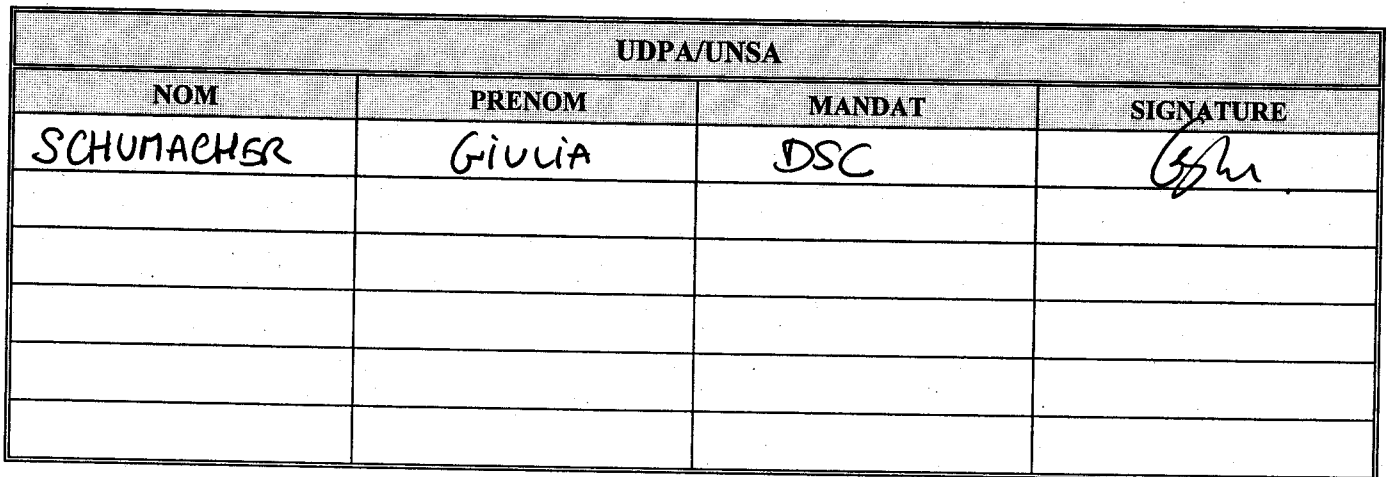 UDPA/UNSA
NOM PRENOM MANDAT SIGNATURE
SCHUMACHER GiULiA DSC